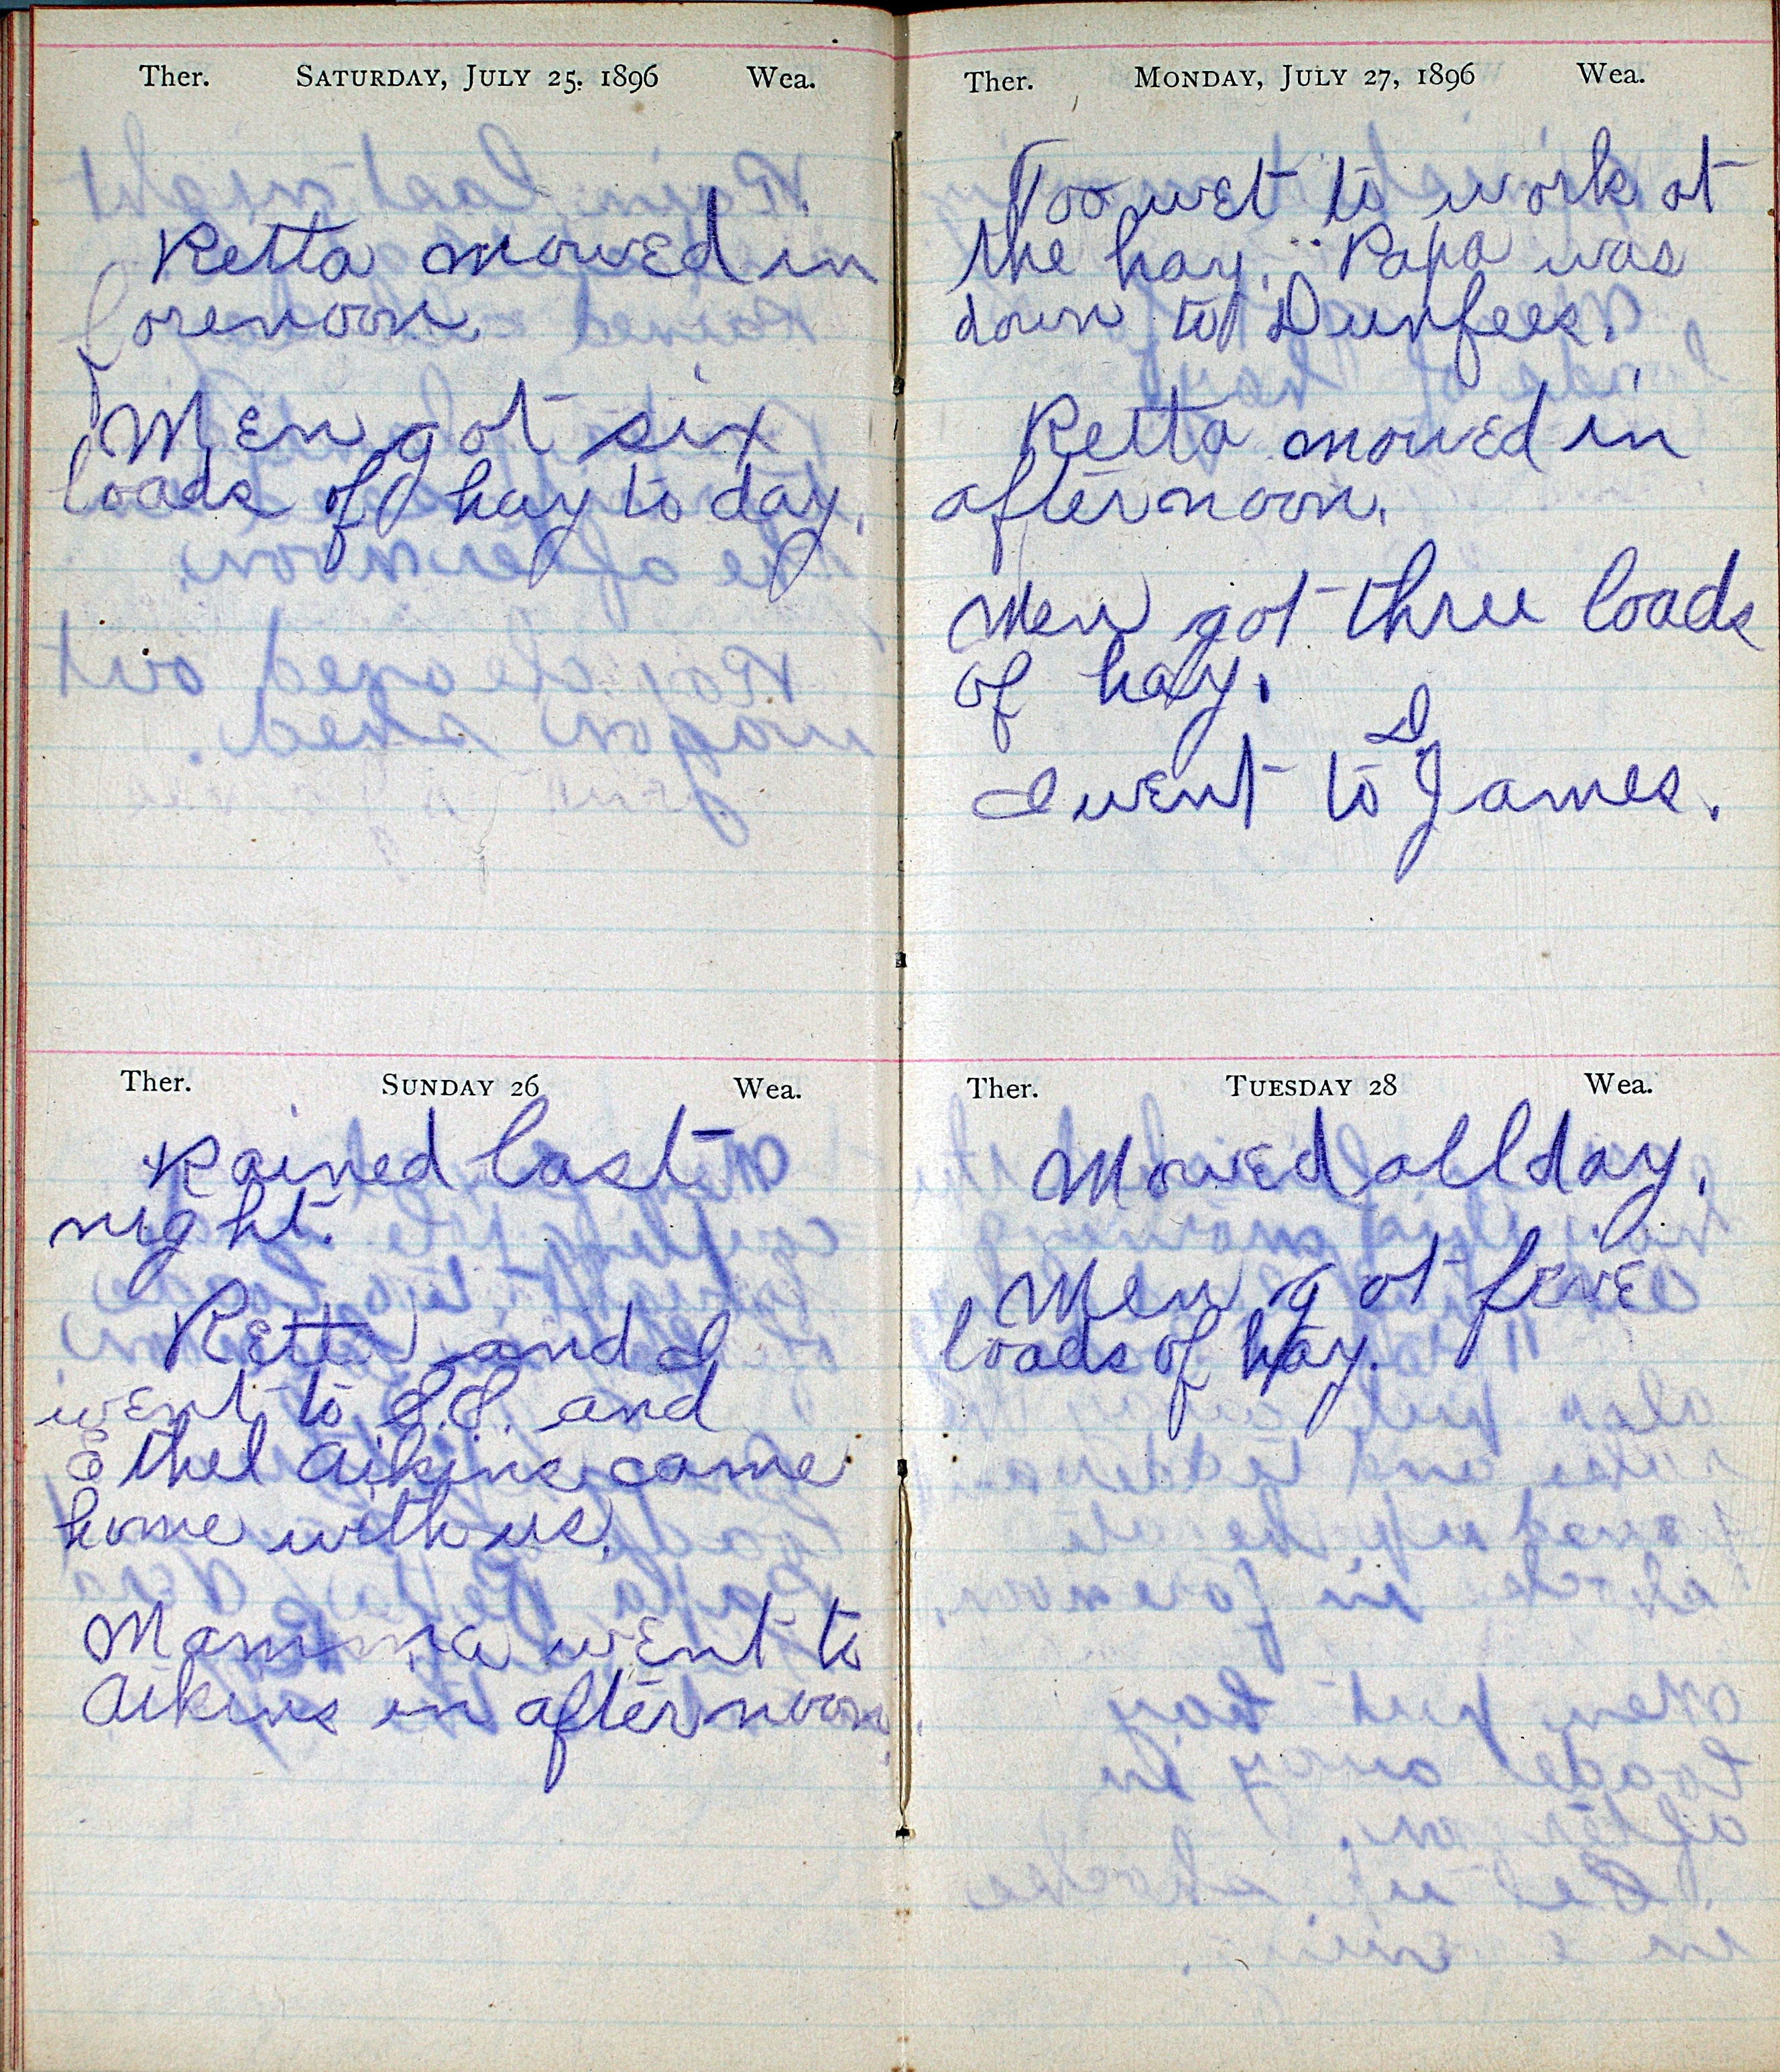 Ther. SATURDAY, JULY 25, 1896 Wea.
Retta mowed in
forenoon.
Men got six
loads of hay to day.
Ther. SUNDAY 26 Wea.
Rained last
night.
Retta and I
went to S.S. and
Ethel Aikins came
home with us.
Mamma went to
Aikins in afternoon.
Ther. MONDAY, JULY 27, 1896 Wea.
Too wet to work at
the hay. Papa was
down to Durfees.
Retta mowed in
afternoon.
Men got three loads
of hay.
I went to James.
Ther. TUESDAY 28 Wea.
Mowed all day.
Men got five
loads of hay.